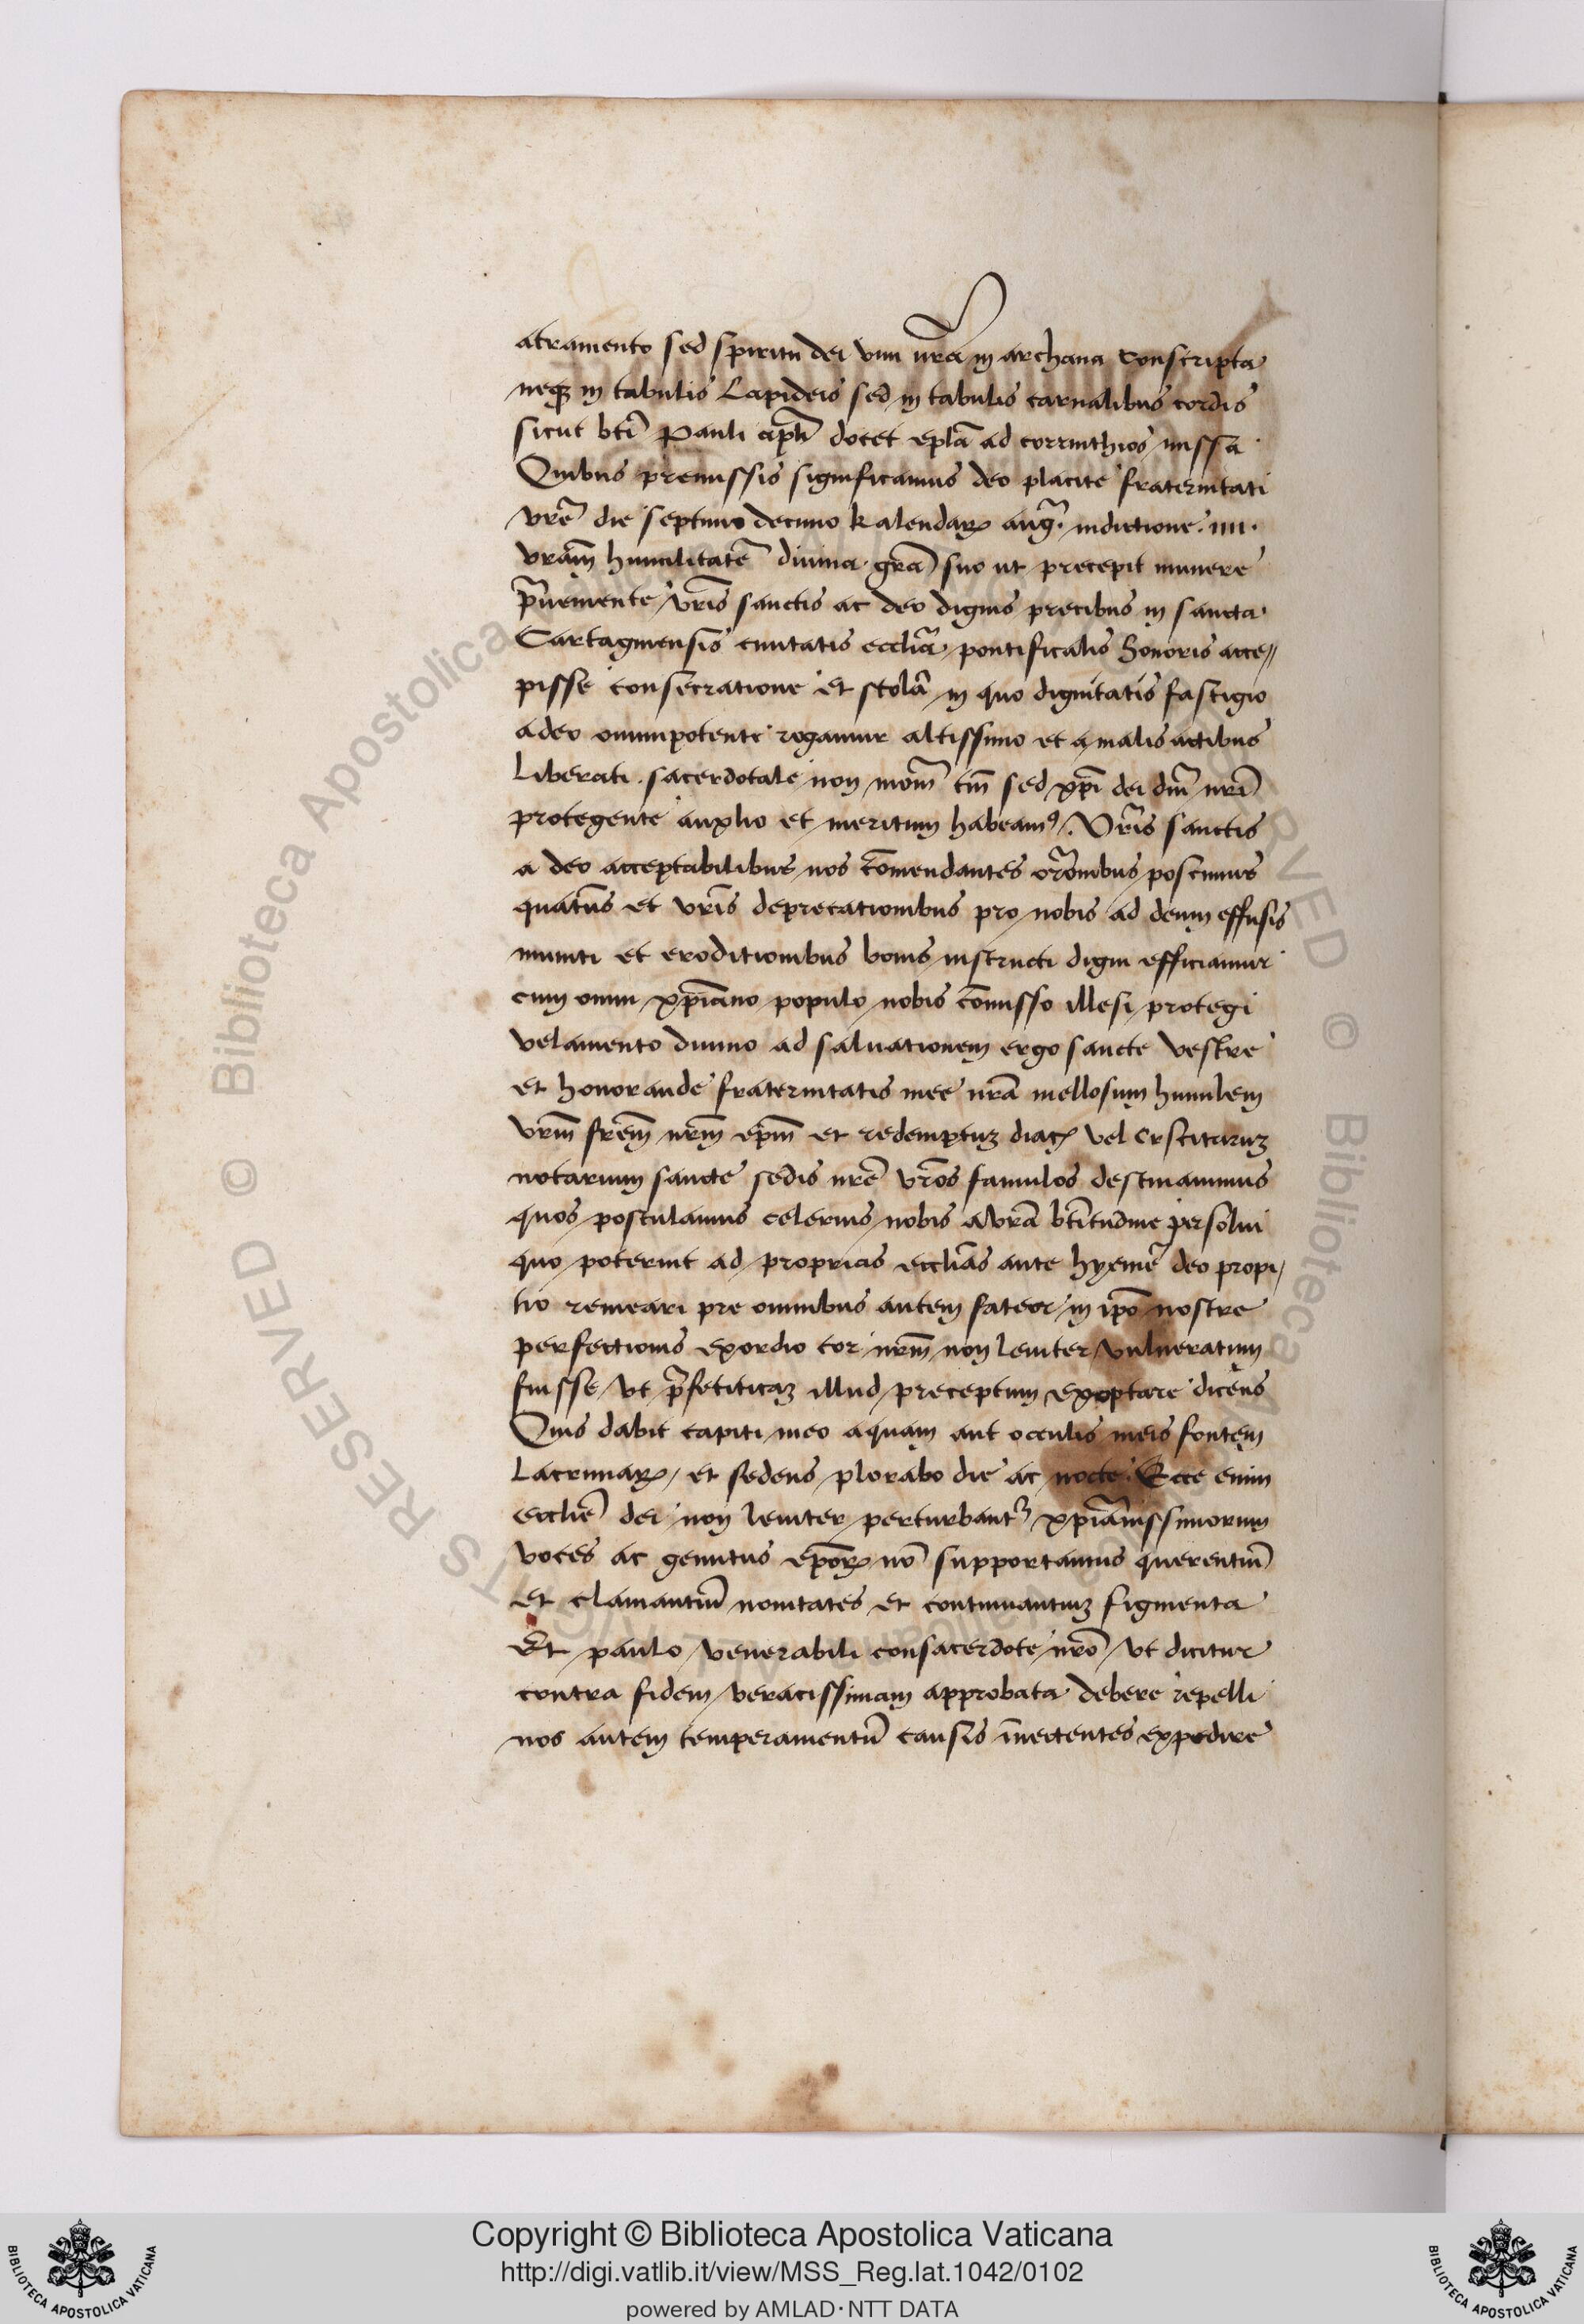 atramento sed spiritu dei viui nr̄a in archana conscripta
neqꝫ in tabulis Lapideis sed in tabulis carnalibus cordis
sicut bti̅ Pauli ap̅li docet epl̅a ad corrinthios missa
Quibus premissis significamus deo placite fraternitati
vr̅e die septimo decimo kalendaꝝ aug̅. indictione. iiii.
vr̅am humilitate̅ diuina gr̅a suo ut precepit munere
p̅uemente vr̅is sanctis ac deo dignis precibus in sancta
Cartaginensis ciuitatis eccl̅ia pontificalis honoris acce//
pisse consecratione et stola̅ in quo dignitatis fastigio
a deo omnipotenti rogamur altissimo et a malis actibus
Liberati. sacerdotale non nom̅ tm̅ sed xp̅i dei dn̅i nr̅i
protegente auxlio et meritum habeamꝰ. Vr̅is sanctis
a deo acceptabilibus nos co̅mendantes or̅onibus poscimus
quaten̅s et vr̅is deprecationibus pro nobis ad deum effusis
muniti et eroditionibus bonis instructi digni efficiamur
cum omni xp̅iano populo nobis co̅misso illesi protegi
velamento diuino ad saluationem ergo sancte vestre
et honorande fraternitatis mee nr̅a mellosum humilem
vr̅m fr̅em nr̅m ep̅m et redemptuꝫ diac̅ vel Crscituruꝫ
notarium sancte sedis nr̅e vr̅os famulos destinauimus
quos postulamus celerius nobis a vr̅a bti̅tudine persolui
quo poterint ad proprias eccl̅ias ante hyeme̅ deo propi/
tio remeari pre omnibus autem fateor in ip̅o nostre
perfectionis exordio cor nr̅m non leniter vulneratum
fuisse vt p̅fetiticaꝫ illud preceptum exoptare dicens
Quis dabit capiti meo aquam aut occulis meis fontem
Lacrimaꝝ, et sedens plorabo die ac nocte. Ecce enim
eccl̅ie dei non leniter perturbant̉ xp̅ianissimorum
voces ac gemitus ep̅oꝝ no̅ supportamus querentiu̅
et clamantiu̅ nouitates et continuantiuꝫ figmenta
Et paulo venerabili consacerdote nr̅o vt dicitur
contra fidem veracissimam approbata debere repelli
nos autem temperamentu̅ causis i̅nectentes expedire
Copyright © Biblioteca Apostolica Vaticana
http://digi.vatlib.it/view/MSS_Reg.lat.1042/0102
powered by AMLAD·NTT DATA